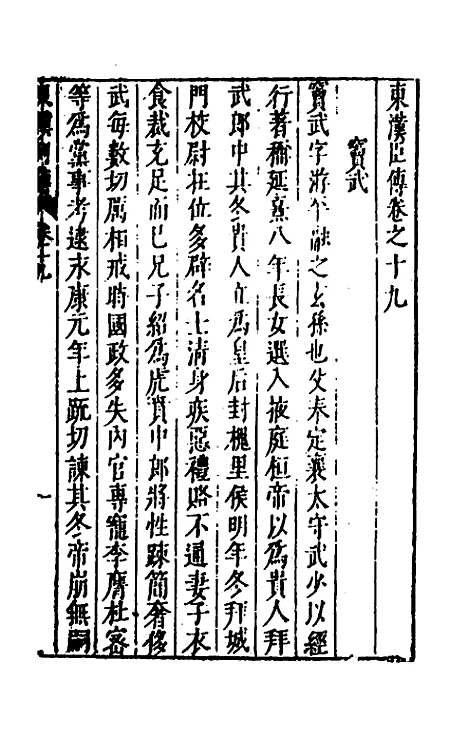 東漢臣傳卷之十九
竇武
竇武字游平融之玄孫也父奉定襄太守武少以經
行著稱延熹八年長女選入掖庭桓帝以爲貴人拜
武郎中其冬貴人立爲皇后封槐里侯明年冬拜城
門校尉在位多辟名士清身疾惡禮賂不通妻子衣
食裁充足而已兄子紹爲虎賁中郎將性踈簡奢侈
武每數切厲相戒時國政多失內官專寵李膺杜密
等爲黨事考逮永康元年上䟽切諫其冬帝崩無嗣
卷十九
一